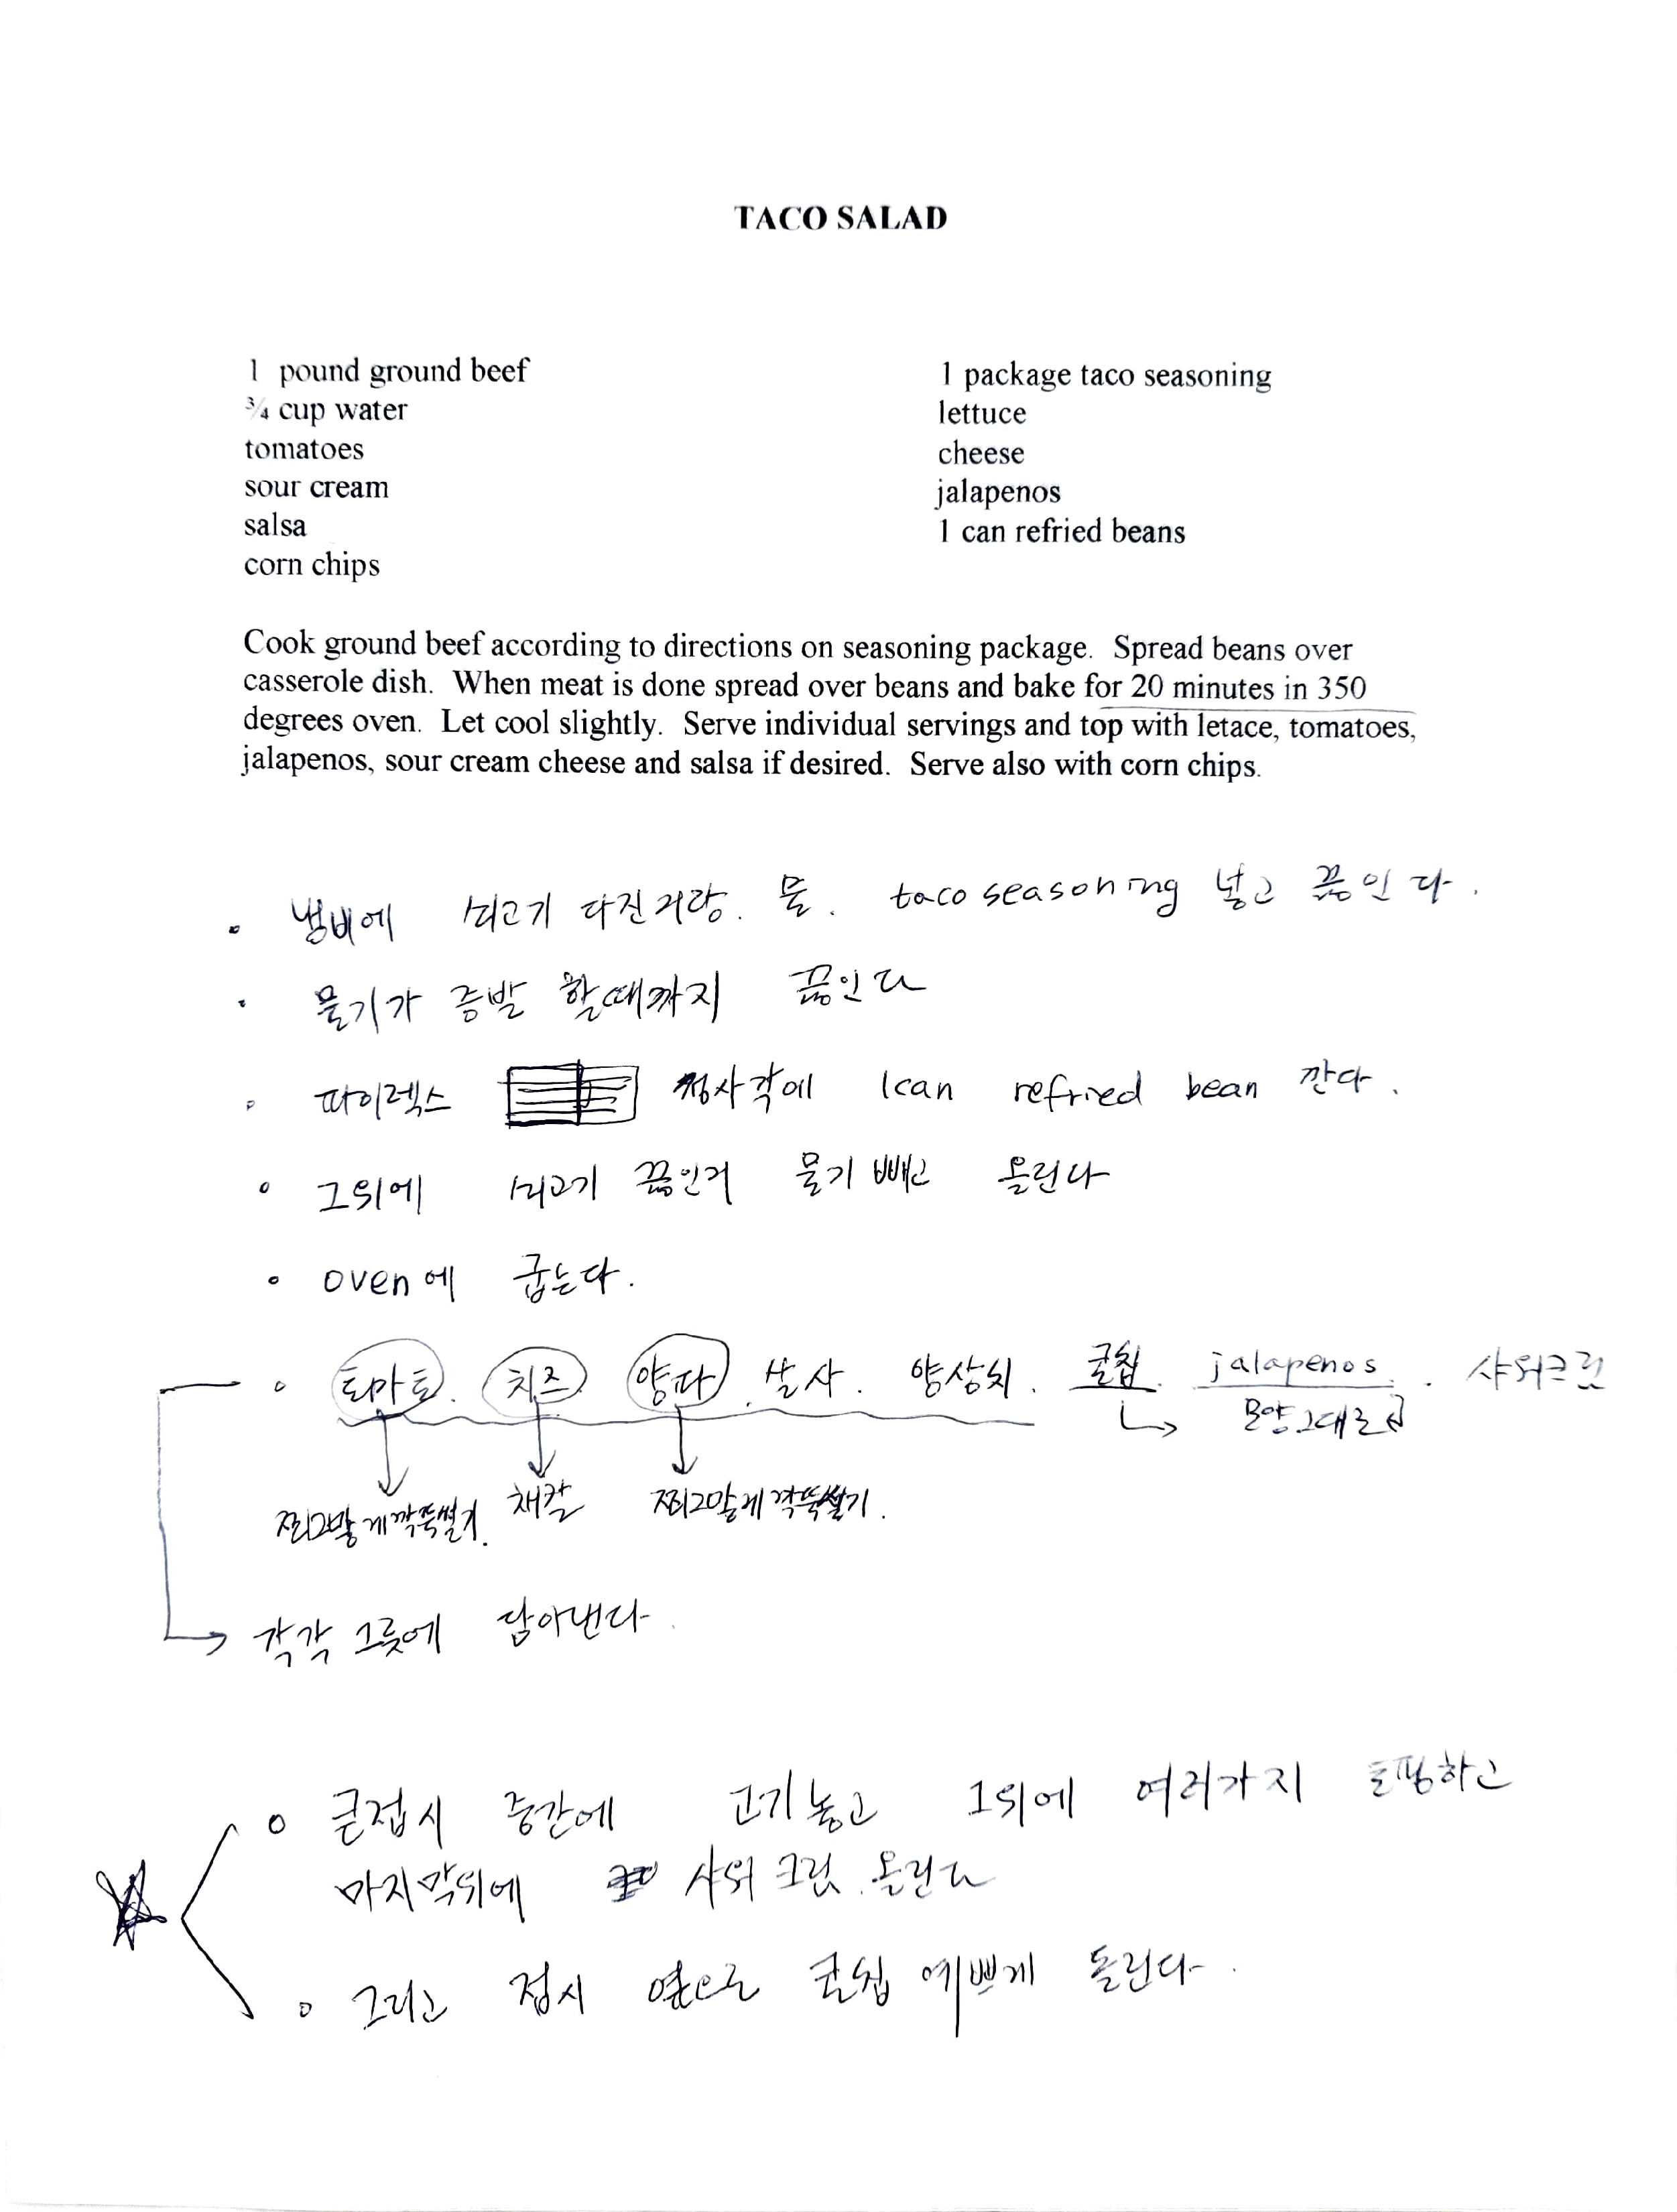 TACO SALAD
1 pound ground beef
¾ cup water
tomatoes
sour cream
salsa
corn chips
1 package taco seasoning
lettuce
cheese
jalapenos
1 can refried beans
Cook ground beef according to directions on seasoning package. Spread beans over
casserole dish. When meat is done spread over beans and bake for 20 minutes in 350
degrees oven. Let cool slightly. Serve individual servings and top with letace, tomatoes,
jalapenos, sour cream cheese and salsa if desired. Serve also with corn chips.
• 냄비에 쇠고기 다진거랑. 물. taco seasoning 넣고 끓인다.
• 물기가 증발 할때까지 끓인다
• 파이렉스 정사각에 1can refried bean 깐다.
• 그위에 쇠고기 끓인거 물기 빼고 올린다
• oven에 굽는다.
• 토마토. 치즈. 양파. 살사. 양상치. 콘칩. jalapenos. 사워크림
모양그대로
찌그맣게깍뚝썰기. 채칼 찌그맣게깍뚝썰기.
각각 그릇에 담아낸다.
• 큰접시 중간에 고기놓고 그위에 여러가지 토핑하고
마지막위에 사워크림 올린다
• 그리고 접시 옆으로 콘칩 예쁘게 돌린다.